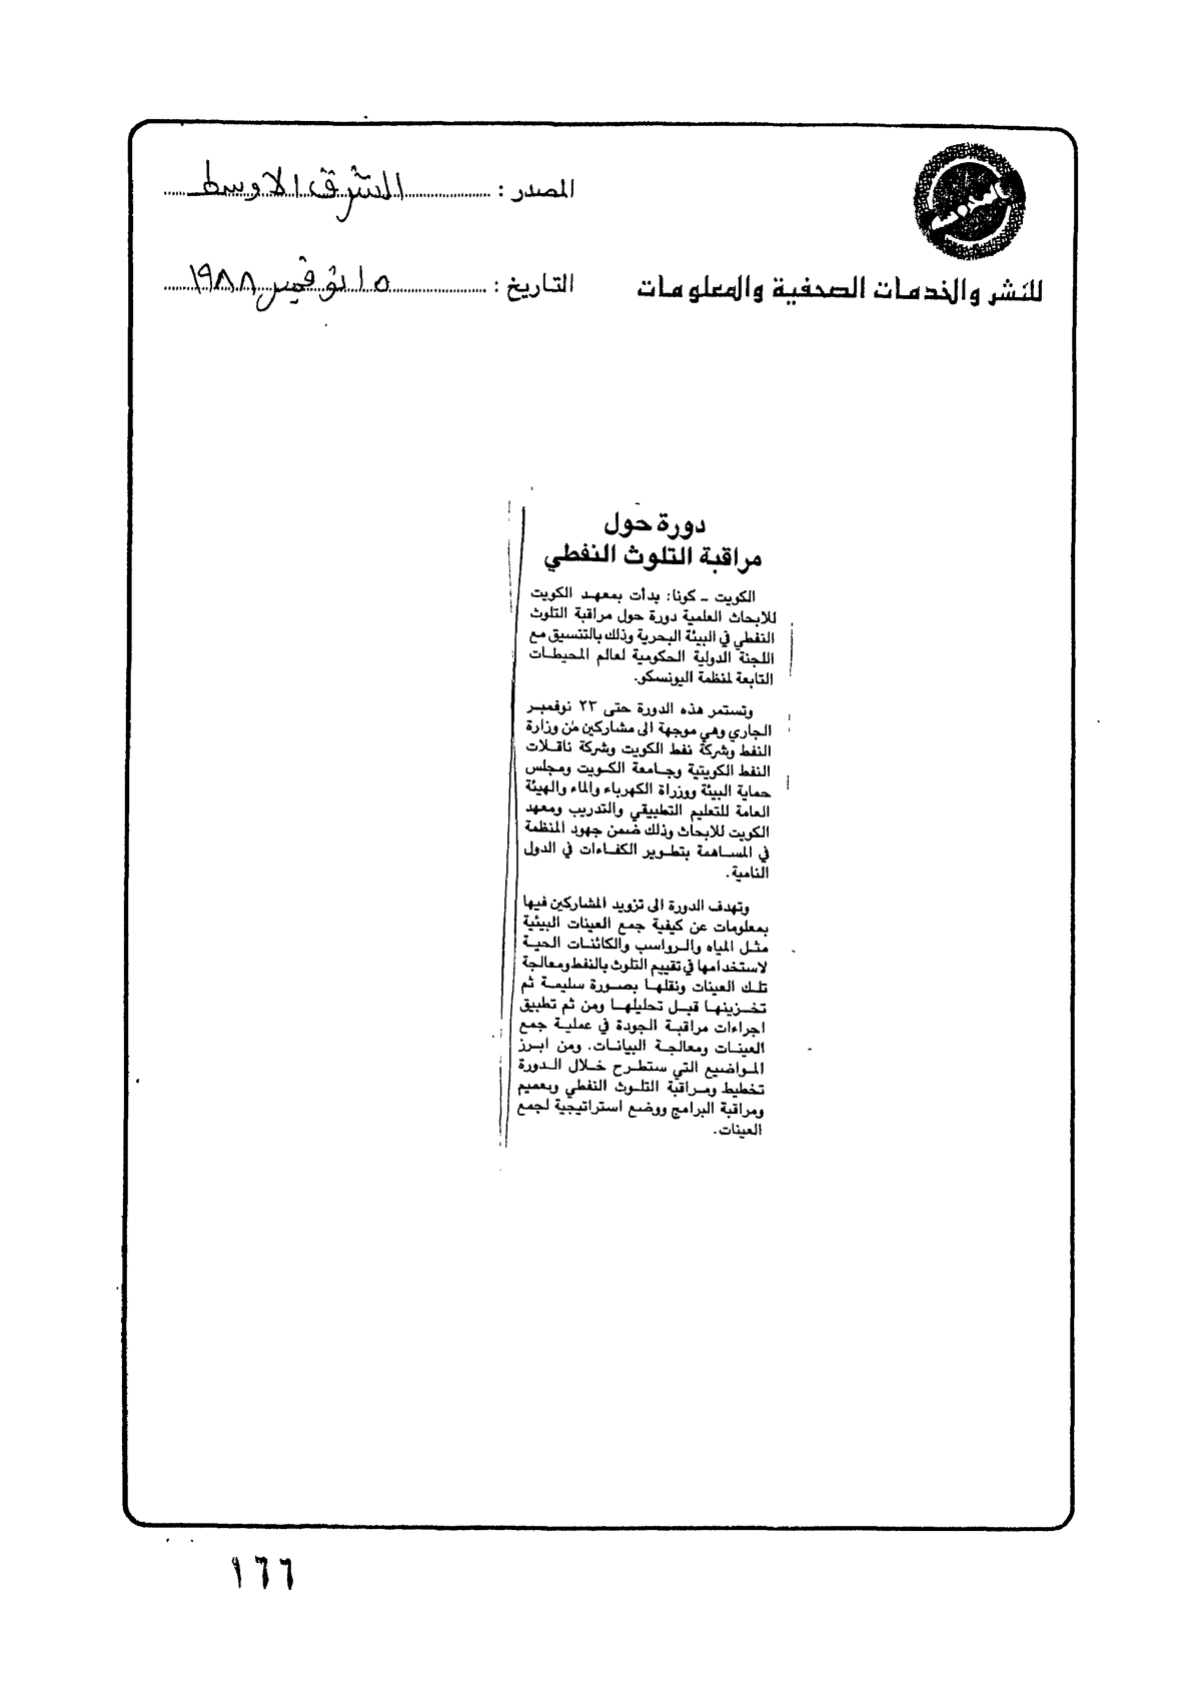 المصدر : الشرق الاوسط
للنشر والخدمات الصحفية والمعلومات
التاريخ : ١٥ نوفمبر ١٩٨٨
دورة حول
مراقبة التلوث النفطي
الكويت ـ كونا: بدأت بمعهد الكويت
للابحاث العلمية دورة حول مراقبة التلوث
النفطي في البيئة البحرية وذلك بالتنسيق مع
اللجنة الدولية الحكومية لعالم المحيطات
التابعة لمنظمة اليونسكو.
وتستمر هذه الدورة حتى ٢٣ نوفمبر
الجاري وهي موجهة الى مشاركين من وزارة
النفط وشركة نفط الكويت وشركة ناقلات
النفط الكويتية وجامعة الكويت ومجلس
حماية البيئة ووزراة الكهرباء والماء والهيئة
العامة للتعليم التطبيقي والتدريب ومعهد
الكويت للابحاث وذلك ضمن جهود المنظمة
في المساهمة بتطوير الكفاءات في الدول
النامية.
وتهدف الدورة الى تزويد المشاركين فيها
بمعلومات عن كيفية جمع العينات البيئية
مثل المياه والرواسب والكائنات الحية
لاستخدامها في تقييم التلوث بالنفط ومعالجة
تلك العينات ونقلها بصورة سليمة ثم
تخزينها قبل تحليلها ومن ثم تطبيق
اجراءات مراقبة الجودة في عملية جمع
العينات ومعالجة البيانات. ومن ابرز
المواضيع التي ستطرح خلال الدورة
تخطيط ومراقبة التلوث النفطي وبعميم
ومراقبة البرامج ووضع استراتيجية لجمع
العينات.
١٦٦